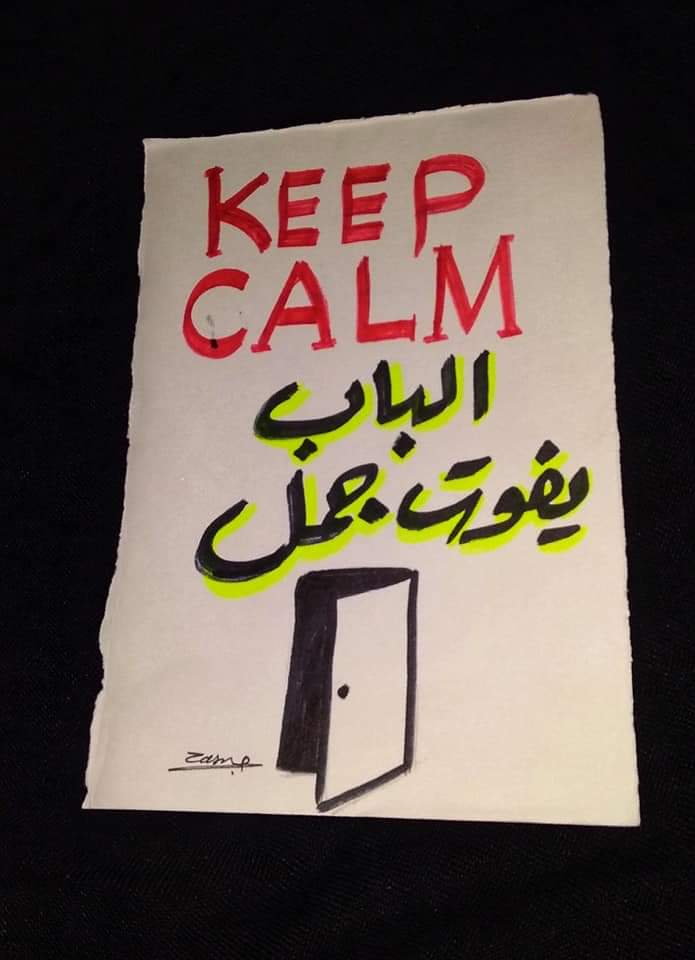 KEEP
CALM
الباب
يفوت جمل